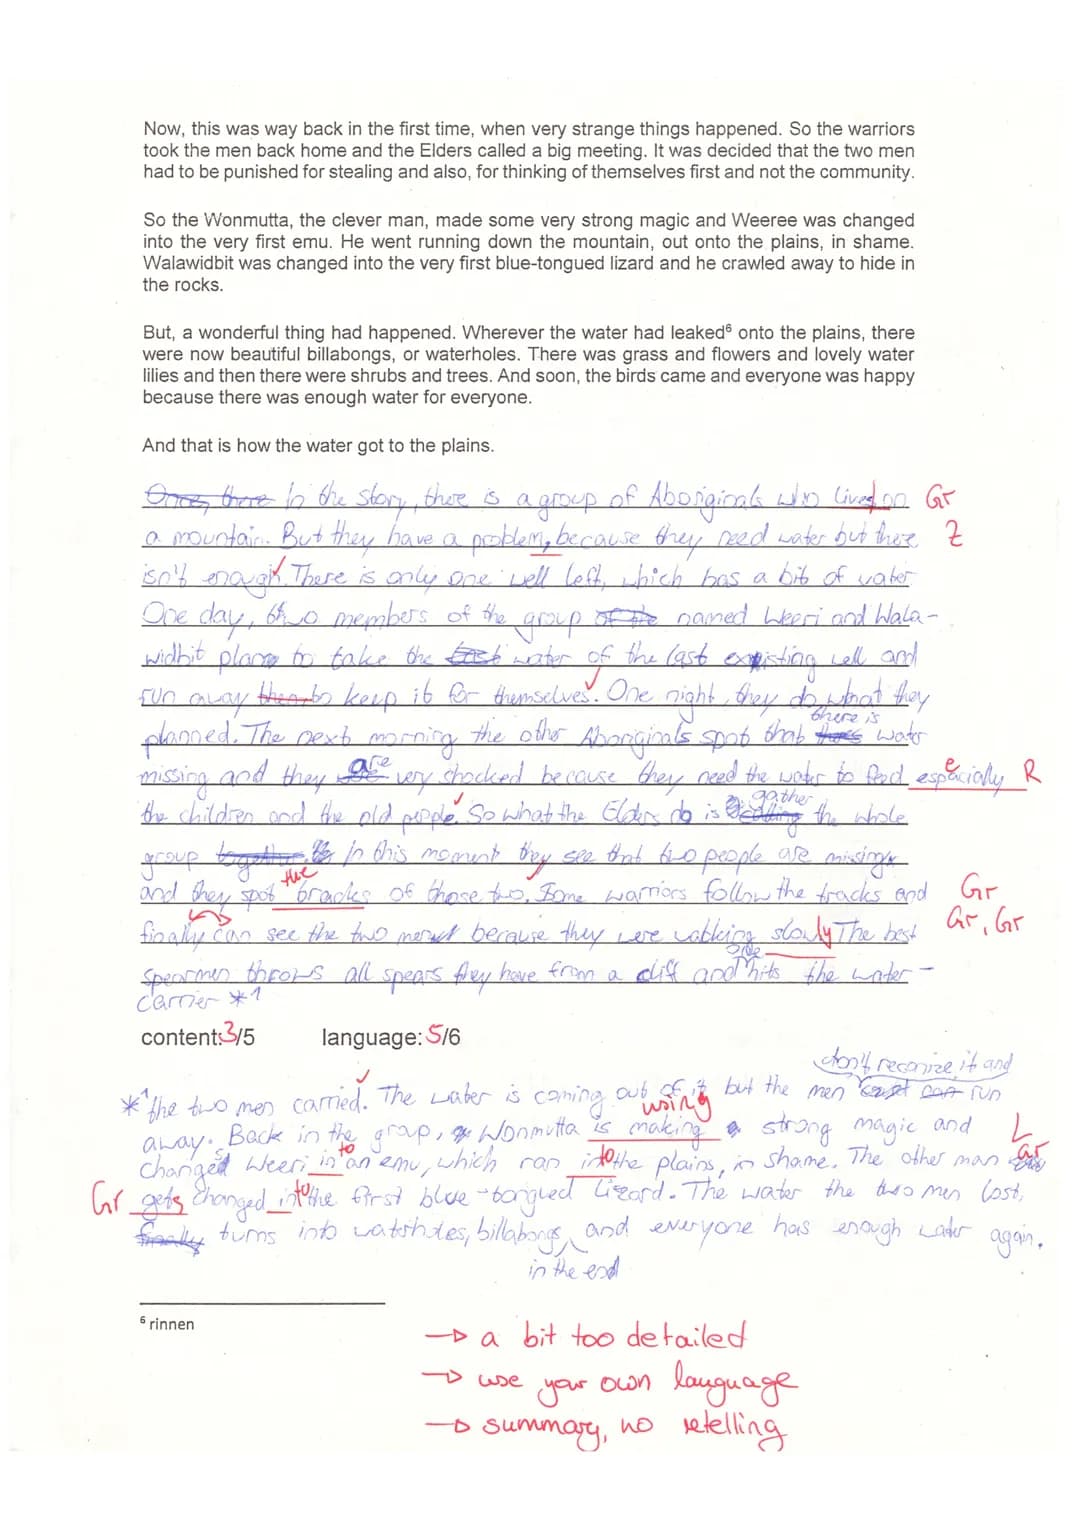 Now, this was way back in the first time, when very strange things happened. So the warriors
took the men back home and the Elders called a big meeting. It was decided that the two men
had to be punished for stealing and also, for thinking of themselves first and not the community.
So the Wonmutta, the clever man, made some very strong magic and Weeree was changed
into the very first emu. He went running down the mountain, out onto the plains, in shame.
Walawidbit was changed into the very first blue-tongued lizard and he crawled away to hide in
the rocks.
But, a wonderful thing had happened. Wherever the water had leaked⁶ onto the plains, there
were now beautiful billabongs, or waterholes. There was grass and flowers and lovely water
lilies and then there were shrubs and trees. And soon, the birds came and everyone was happy
because there was enough water for everyone.
And that is how the water got to the plains.
Once, there In the story, there is a group of Aboriginals who lived on Gr
a mountain. But they have a problem, because they need water but there Z
isn't enough. There is only one well left, which has a bit of water.
One day, two members of the group of the named Weeri and Wala-
widbit plan to take the water of the last existing well and
run away to keep it for themselves. One night, they do what they
there is
planned. The next morning the other Aboriginals spot that water
missing and they are very shocked because they need the water to feed especially R
gather
the children and the old people. So what the Elders do is the whole
group together. In this moment they see that two people are missing
and they spot the tracks of those two. Some warriors follow the tracks and Gr
finally can see the two men because they were walking slowly. The best Gr, Gr
one
Spearmen throws all spears they have from a cliff and hits the water-
carrier *1
content: 3/5 language: 5/6
don't reconize it and
*1 the two men carried. The water is coming out of it but the men run
using
away. Back in the group, Wonmutta is making a strong magic and L
changed Weeri into an emu, which ran into the plains, in shame. The other man Gr
Gr gets changed into the first blue-tongued lizard. The water the two men lost,
finally turns into waterholes, billabongs, and everyone has enough water again.
in the end
⁶ rinnen
→ a bit too detailed
→ use your own language
→ summary, no retelling